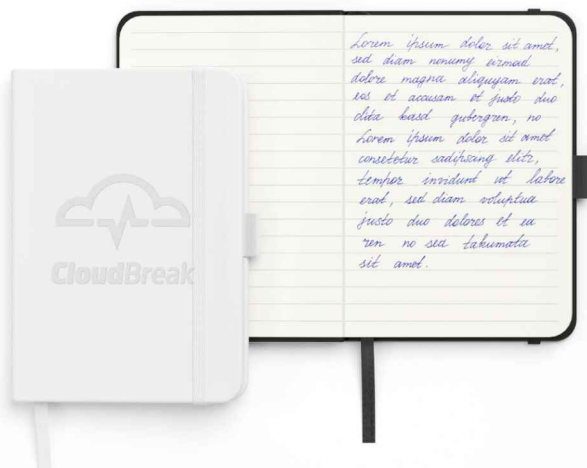 CloudBreak
Lorem ipsum dolor sit amet,
sed diam nonumy eirmod
dolore magna aliquyam erat,
eos et accusam et justo duo
clita kasd gubergren, no
Lorem ipsum dolor sit amet
consetetur sadipscing elitr,
tempor invidunt ut labore
erat, sed diam voluptua
justo duo dolores et ea
ren no sea takumata
sit amet.